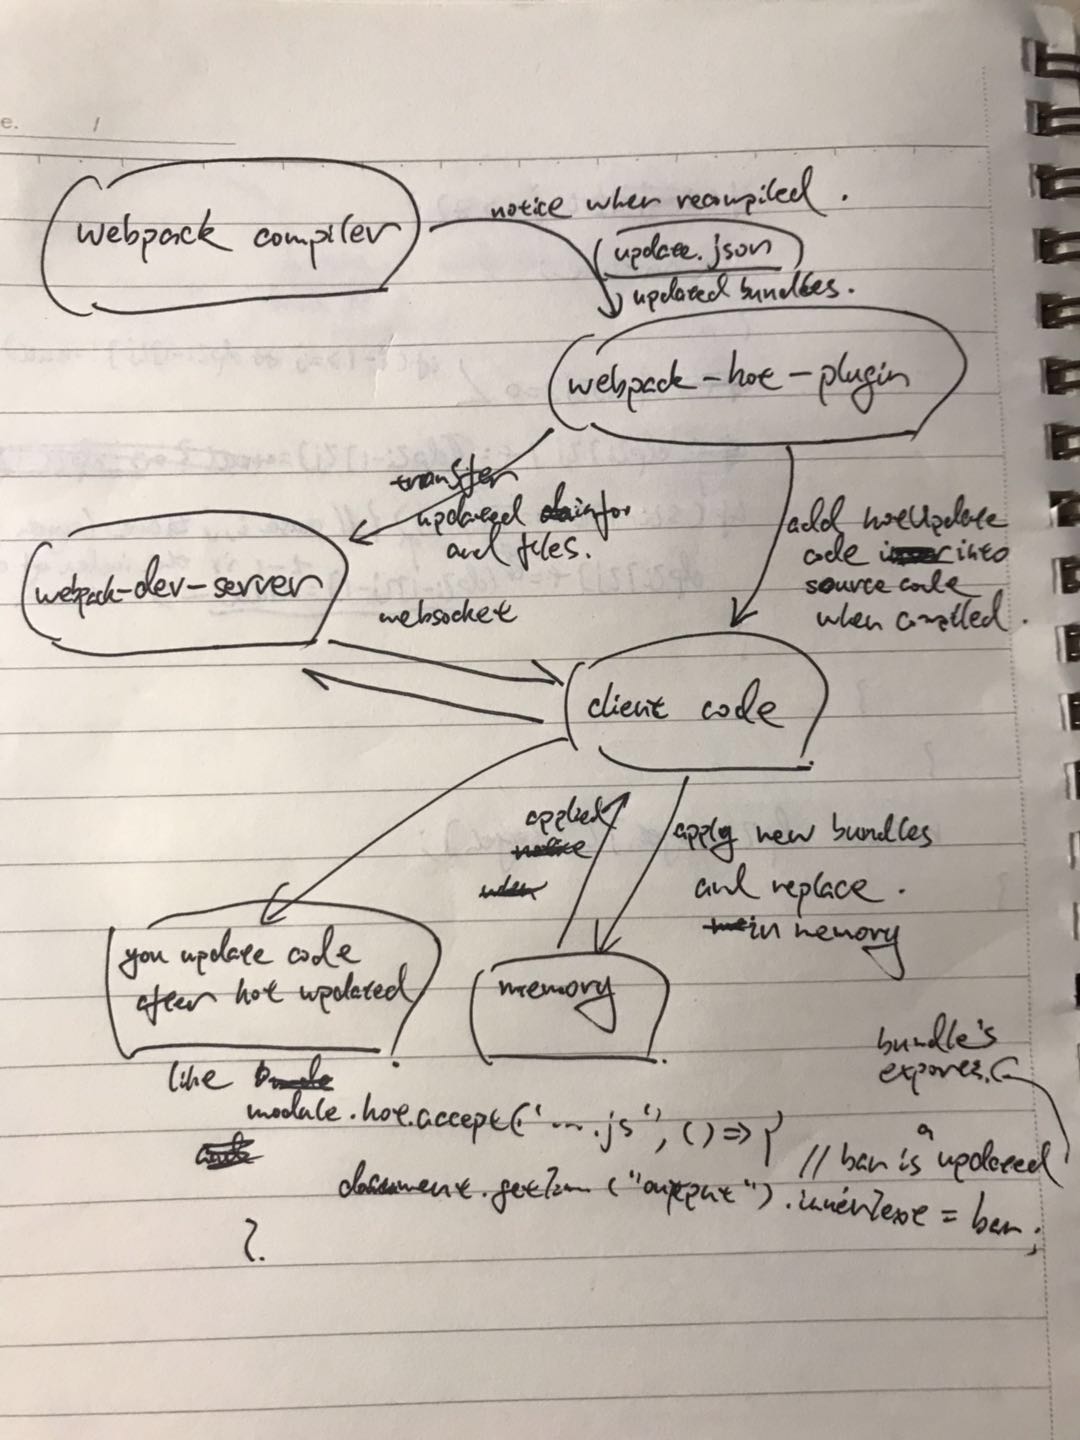 e. 1
webpack compiler
notice when recompiled.
update.json
updated bundles.
webpack-hot-plugin
transfer
updated infor
and files.
add hotUpdate
code into
source code
when compiled.
webpack-dev-server
websocket
client code
applied
notice
when
apply new bundles
and replace.
in memory
you update code
after hot updated
memory
like
bundle's
expores.
module.hot.accept('....js', () => {
// bar is updated
document.get ("output").innerText = bar;
}.